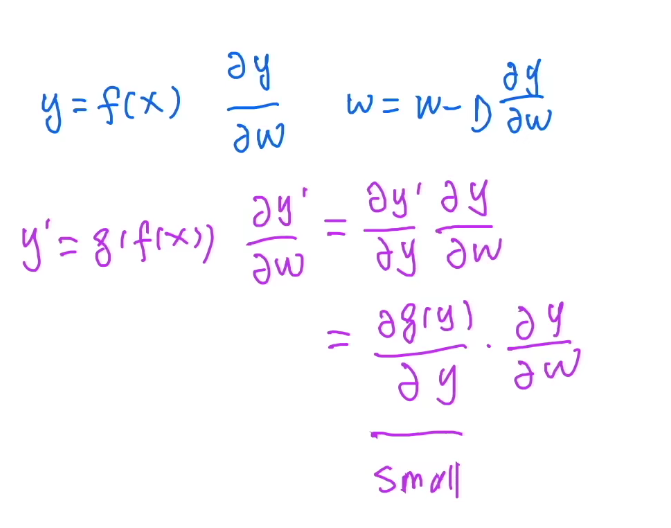 y = f(x) ∂y/∂w w = w - D ∂y/∂w
y' = g(f(x)) ∂y'/∂w = ∂y'/∂y ∂y/∂w
= ∂g(y)/∂y · ∂y/∂w
small